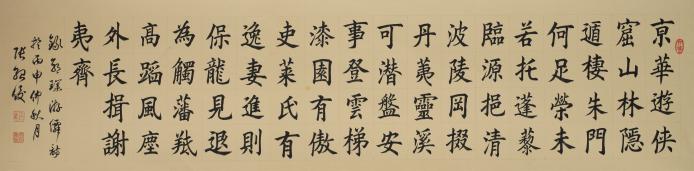 京華遊俠
窟山林隱
遁棲朱門
何足榮未
若托蓬藜
臨源挹清
波陵岡掇
丹荑靈溪
可潛盤安
事登雲梯
漆園有傲
吏萊氏有
逸妻進則
保龍見退
為觸藩羝
髙蹈風塵
外長揖謝
夷齊
錄郭璞游僊詩
於丙申仲秋月
張